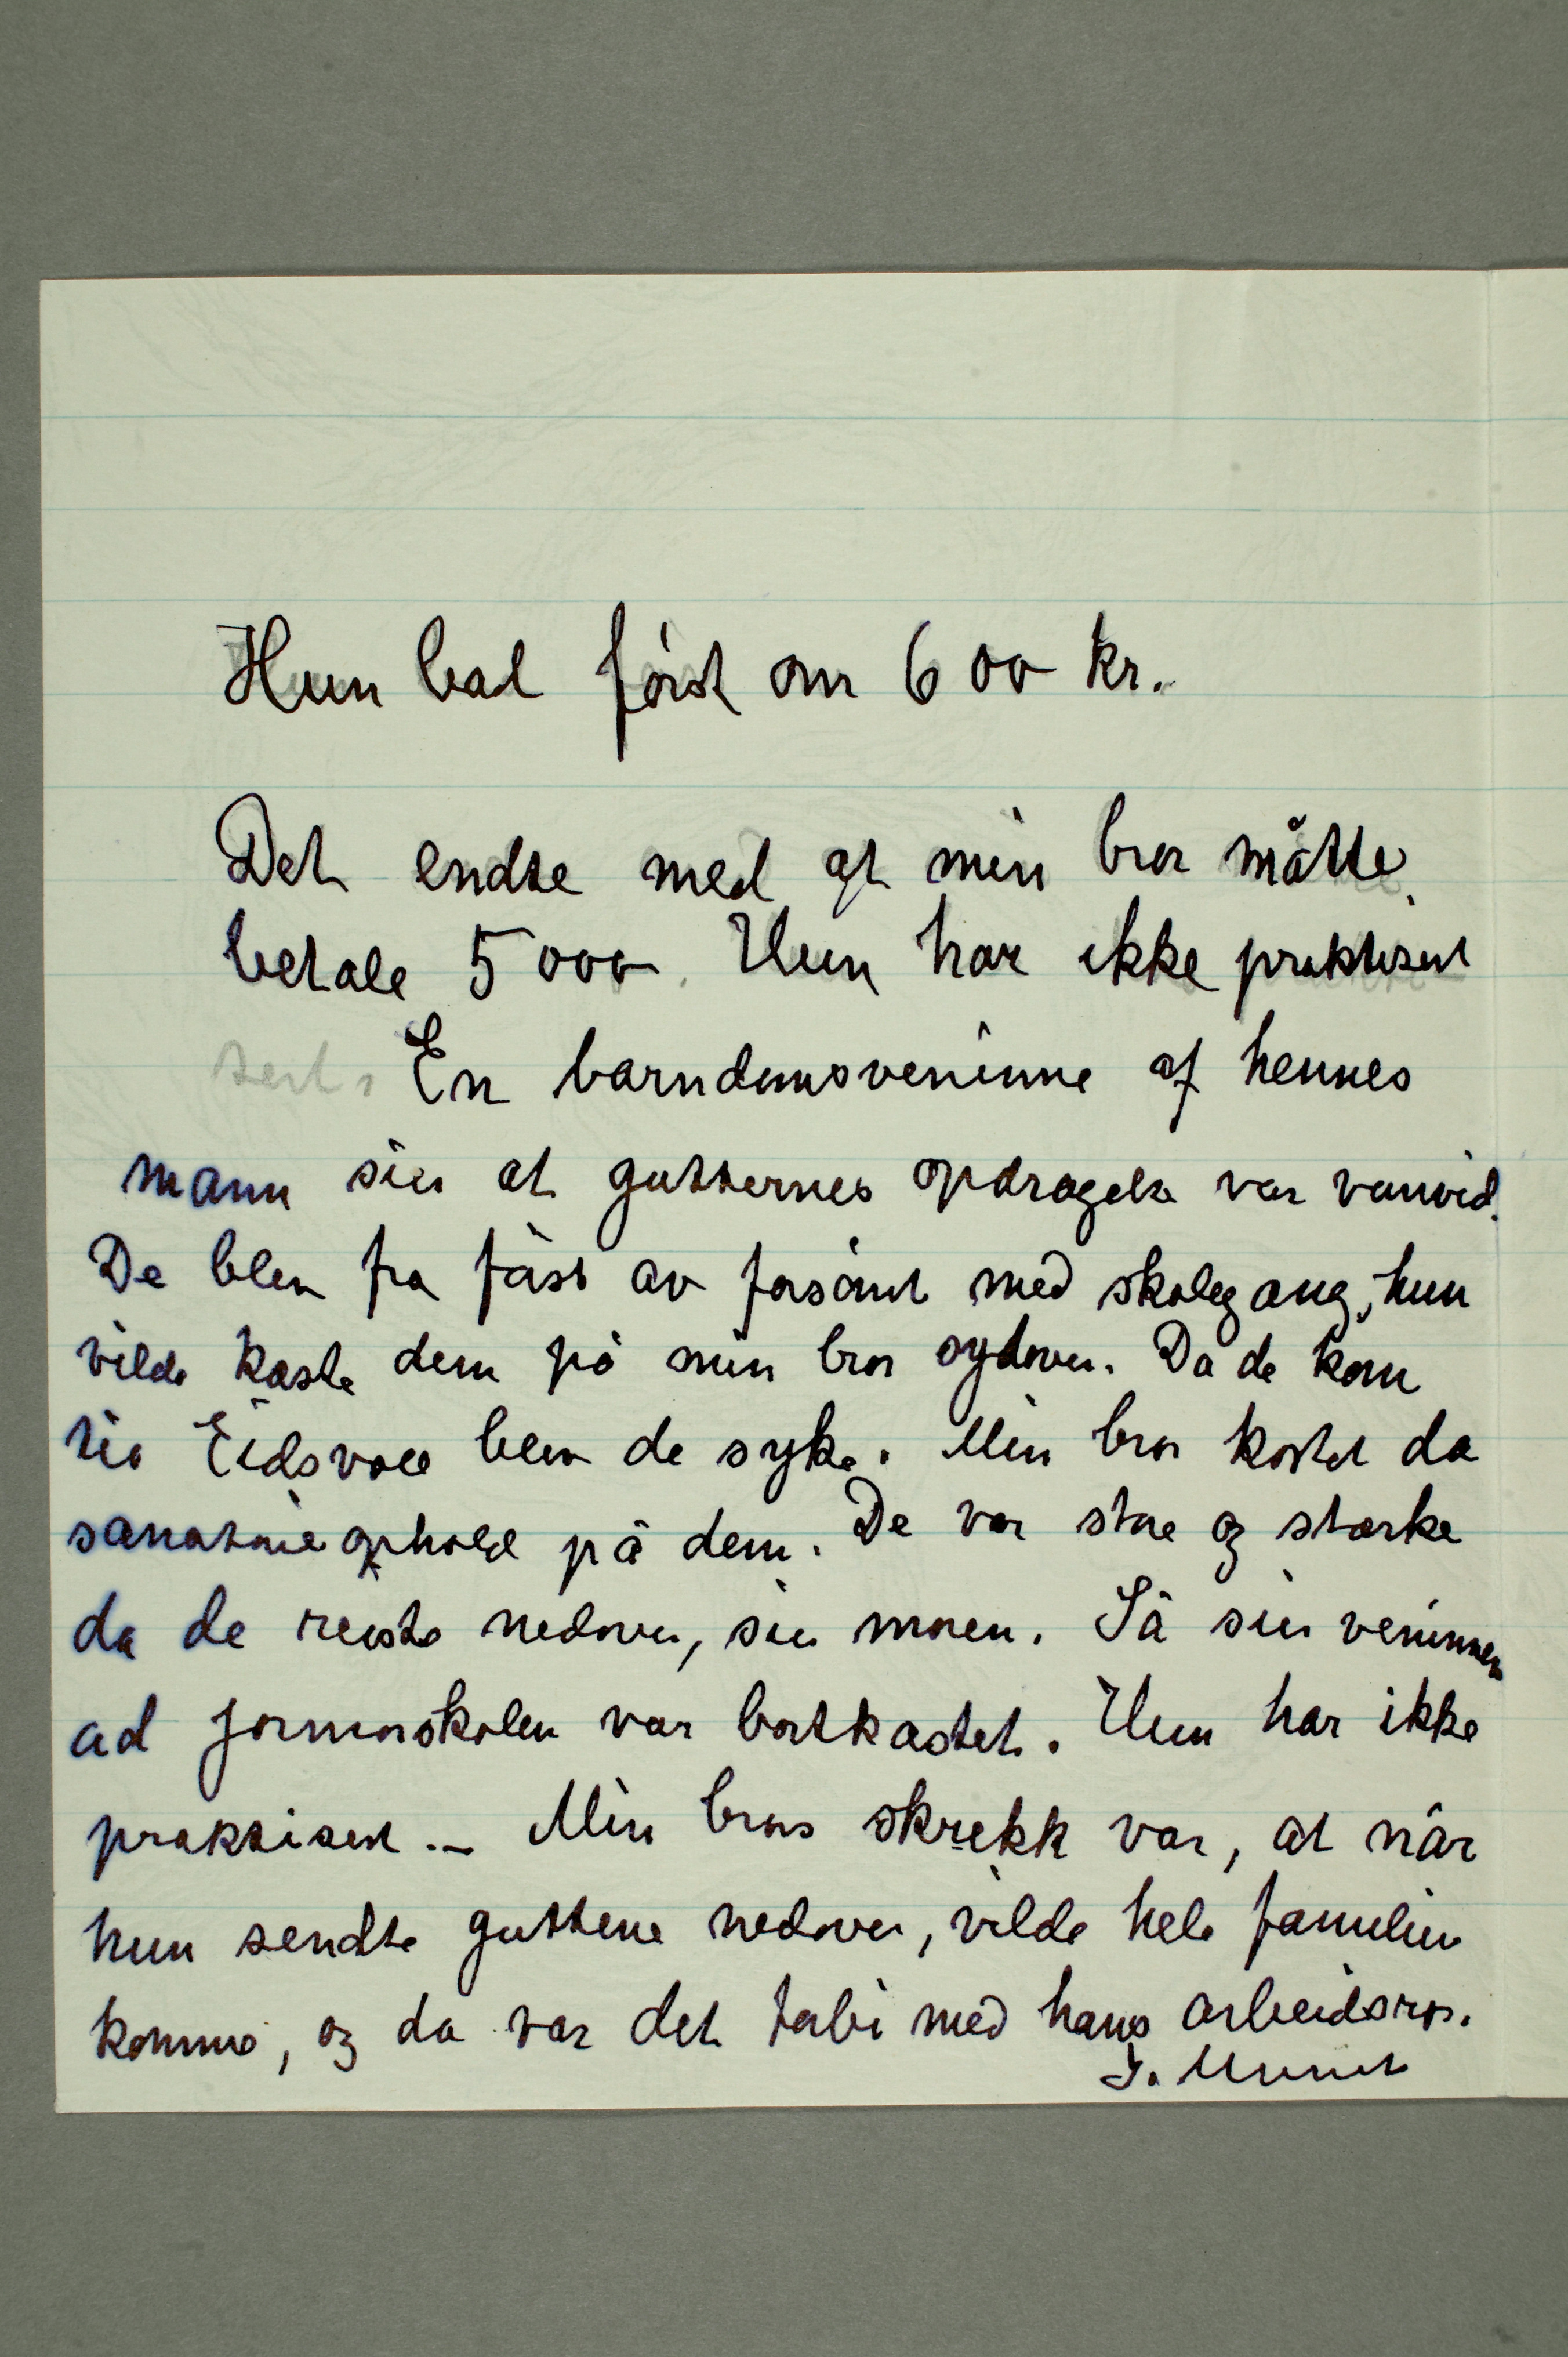 Hun bad först om 600 kr.
Det endte med at min bror måtte
betale 5000. Hun har ikke praktisert
sert. En barndomsveninne af hennes
mann sier at gutternes opdragelse var vanvid.
De blev fra först av forsömt med skolegang, hun
vilde kaste dem på min bror sydover. Da de kom
til Eidsvoll blev de syke. Min bror kostet da
sanatorieophold på dem. De var store og stærke
da de reiste nedover, sier moren. Så sier veninnen
ad formorskolen var bortkastet. Hun har ikke
praktisert. – Min brors skrekk var, at når
hun sendte guttene nedover, vilde hele familien
komme, og da var det forbi med hans arbeidsro.
I. Munch